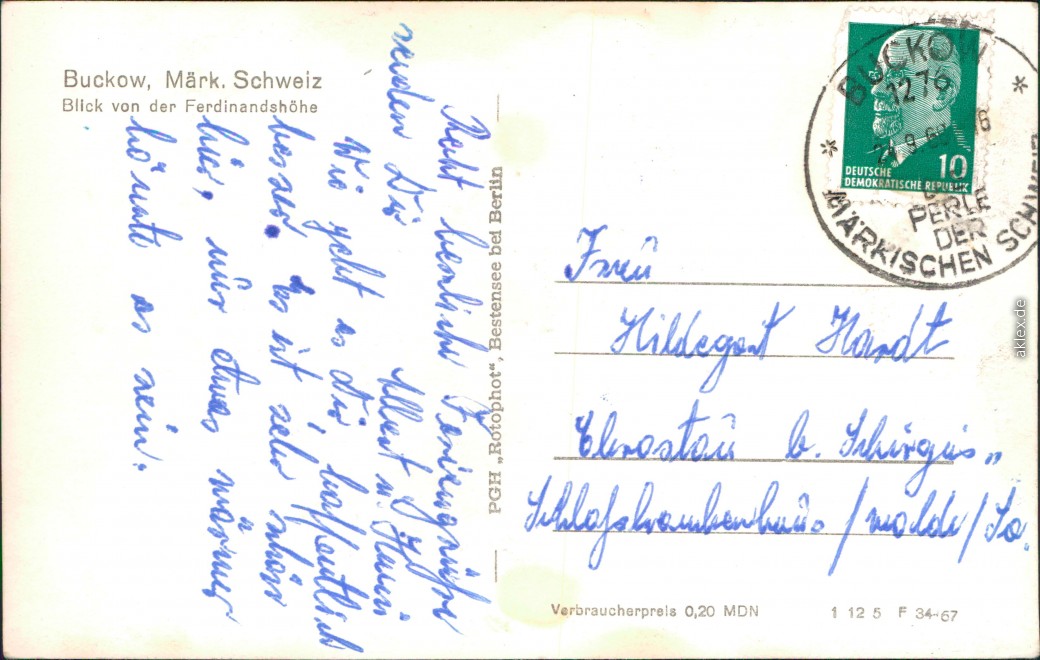 Buckow, Märk. Schweiz
Blick von der Ferdinandshöhe
Recht herzliche Feriengrüße
senden Dir
Albert u. Hanni
Wie geht es Dir, hoffentlich
besser. Es ist sehr schön
hier, nur etwas wärmer
könnte es sein.
PGH „Rotophot“, Bestensee bei Berlin
BUCKOW
1279
9.68 16
PERLE
DER
MÄRKISCHEN SCHWEIZ
10
DEUTSCHE
DEMOKRATISCHE REPUBLIK
Frau
Hildegart Hardt
Chrostau b. Schirgis„
Schloßkrankenhaus / walde / Sa.
Verbraucherpreis 0,20 MDN
1 12 5 F 34-67
aklex.de